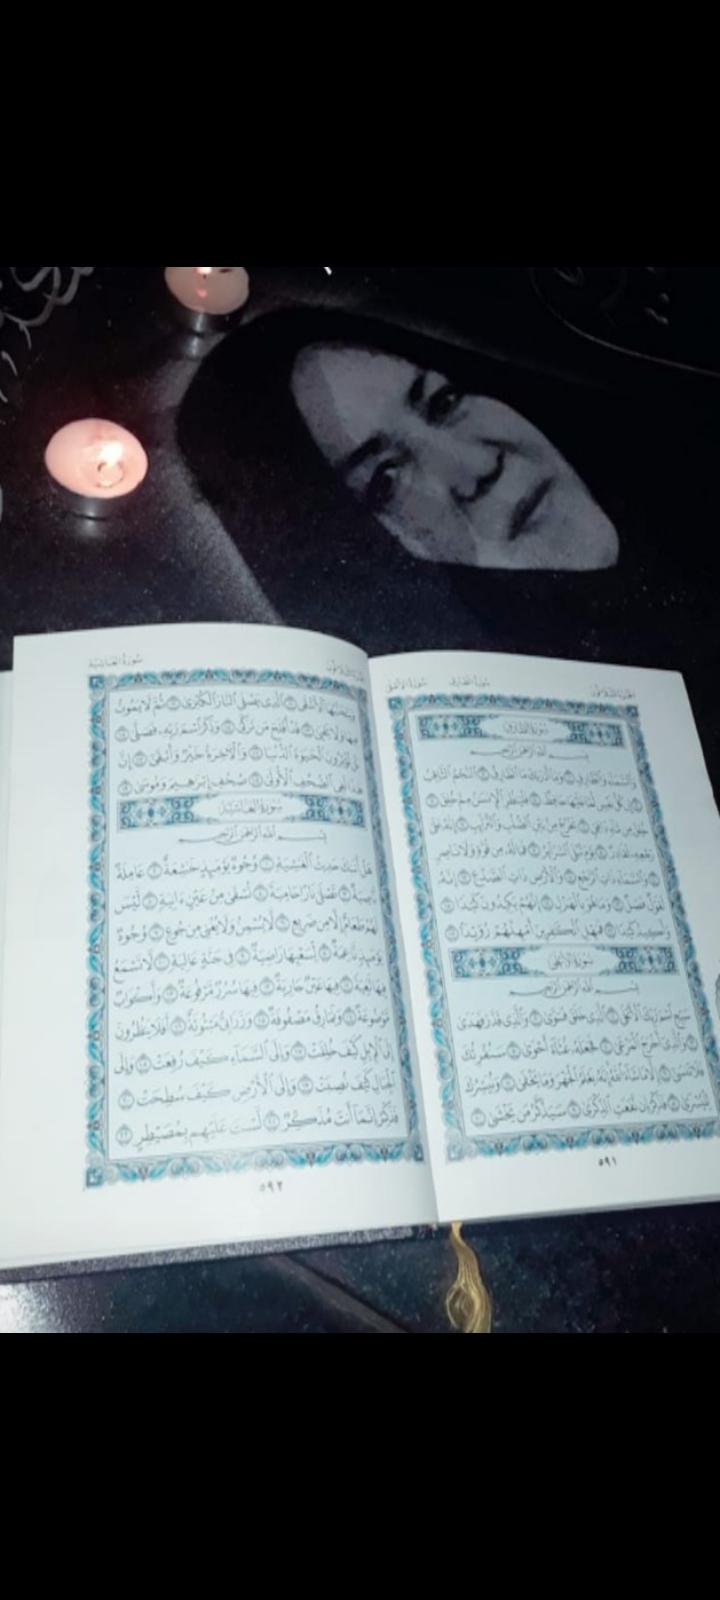 سُورَةُ الأَعْلَى سُورَةُ الطَّارِقِ الجُزْءُ الثَّلَاثُونَ
سُورَةُ الطَّارِقِ
بِسْمِ ٱللَّهِ ٱلرَّحْمَٰنِ ٱلرَّحِيمِ
وَٱلسَّمَآءِ وَٱلطَّارِقِ ١ وَمَآ أَدْرَىٰكَ مَا ٱلطَّارِقُ ٢ ٱلنَّجْمُ ٱلثَّاقِبُ
٣ إِن كُلُّ نَفْسٍ لَّمَّا عَلَيْهَا حَافِظٌ ٤ فَلْيَنظُرِ ٱلْإِنسَٰنُ مِمَّ خُلِقَ ٥
خُلِقَ مِن مَّآءٍ دَافِقٍ ٦ يَخْرُجُ مِنۢ بَيْنِ ٱلصُّلْبِ وَٱلتَّرَآئِبِ ٧ إِنَّهُۥ عَلَىٰ
رَجْعِهِۦ لَقَادِرٌ ٨ يَوْمَ تُبْلَى ٱلسَّرَآئِرُ ٩ فَمَا لَهُۥ مِن قُوَّةٍ وَلَا نَاصِرٍ
١٠ وَٱلسَّمَآءِ ذَاتِ ٱلرَّجْعِ ١١ وَٱلْأَرْضِ ذَاتِ ٱلصَّدْعِ ١٢ إِنَّهُۥ
لَقَوْلٌ فَصْلٌ ١٣ وَمَا هُوَ بِٱلْهَزْلِ ١٤ إِنَّهُمْ يَكِيدُونَ كَيْدًا ١٥
وَأَكِيدُ كَيْدًا ١٦ فَمَهِّلِ ٱلْكَٰفِرِينَ أَمْهِلْهُمْ رُوَيْدًۢا ١٧
سُورَةُ الأَعْلَى
بِسْمِ ٱللَّهِ ٱلرَّحْمَٰنِ ٱلرَّحِيمِ
سَبِّحِ ٱسْمَ رَبِّكَ ٱلْأَعْلَى ١ ٱلَّذِى خَلَقَ فَسَوَّىٰ ٢ وَٱلَّذِى قَدَّرَ فَهَدَىٰ
٣ وَٱلَّذِىٓ أَخْرَجَ ٱلْمَرْعَىٰ ٤ فَجَعَلَهُۥ غُثَآءً أَحْوَىٰ ٥ سَنُقْرِئُكَ
فَلَا تَنسَىٰٓ ٦ إِلَّا مَا شَآءَ ٱللَّهُ إِنَّهُۥ يَعْلَمُ ٱلْجَهْرَ وَمَا يَخْفَىٰ ٧ وَنُيَسِّرُكَ
لِلْيُسْرَىٰ ٨ فَذَكِّرْ إِن نَّفَعَتِ ٱلذِّكْرَىٰ ٩ سَيَذَّكَّرُ مَن يَخْشَىٰ ١٠
٥٩١
سُورَةُ الغَاشِيَةِ الجُزْءُ الثَّلَاثُونَ
وَيَتَجَنَّبُهَا ٱلْأَشْقَى ١١ ٱلَّذِى يَصْلَى ٱلنَّارَ ٱلْكُبْرَىٰ ١٢ ثُمَّ لَا يَمُوتُ
فِيهَا وَلَا يَحْيَىٰ ١٣ قَدْ أَفْلَحَ مَن تَزَكَّىٰ ١٤ وَذَكَرَ ٱسْمَ رَبِّهِۦ فَصَلَّىٰ ١٥
بَلْ تُؤْثِرُونَ ٱلْحَيَوٰةَ ٱلدُّنْيَا ١٦ وَٱلْءَاخِرَةُ خَيْرٌ وَأَبْقَىٰٓ ١٧ إِنَّ
هَٰذَا لَفِى ٱلصُّحُفِ ٱلْأُولَىٰ ١٨ صُحُفِ إِبْرَٰهِيمَ وَمُوسَىٰ ١٩
سُورَةُ الغَاشِيَةِ
بِسْمِ ٱللَّهِ ٱلرَّحْمَٰنِ ٱلرَّحِيمِ
هَلْ أَتَىٰكَ حَدِيثُ ٱلْغَٰشِيَةِ ١ وُجُوهٌ يَوْمَئِذٍ خَٰشِعَةٌ ٢ عَامِلَةٌ
نَّاصِبَةٌ ٣ تَصْلَىٰ نَارًا حَامِيَةً ٤ تُسْقَىٰ مِنْ عَيْنٍ ءَانِيَةٍ ٥ لَّيْسَ
لَهُمْ طَعَامٌ إِلَّا مِن ضَرِيعٍ ٦ لَّا يُسْمِنُ وَلَا يُغْنِى مِن جُوعٍ ٧ وُجُوهٌ
يَوْمَئِذٍ نَّاعِمَةٌ ٨ لِّسَعْيِهَا رَاضِيَةٌ ٩ فِى جَنَّةٍ عَالِيَةٍ ١٠ لَّا تَسْمَعُ
فِيهَا لَٰغِيَةً ١١ فِيهَا عَيْنٌ جَارِيَةٌ ١٢ فِيهَا سُرُرٌ مَّرْفُوعَةٌ ١٣ وَأَكْوَابٌ
مَّوْضُوعَةٌ ١٤ وَنَمَارِقُ مَصْفُوفَةٌ ١٥ وَزَرَابِىُّ مَبْثُوثَةٌ ١٦ أَفَلَا يَنظُرُونَ
إِلَى ٱلْإِبِلِ كَيْفَ خُلِقَتْ ١٧ وَإِلَى ٱلسَّمَآءِ كَيْفَ رُفِعَتْ ١٨ وَإِلَى
ٱلْجِبَالِ كَيْفَ نُصِبَتْ ١٩ وَإِلَى ٱلْأَرْضِ كَيْفَ سُطِحَتْ ٢٠
فَذَكِّرْ إِنَّمَآ أَنتَ مُذَكِّرٌ ٢١ لَّسْتَ عَلَيْهِم بِمُصَيْطِرٍ ٢٢
٥٩٢